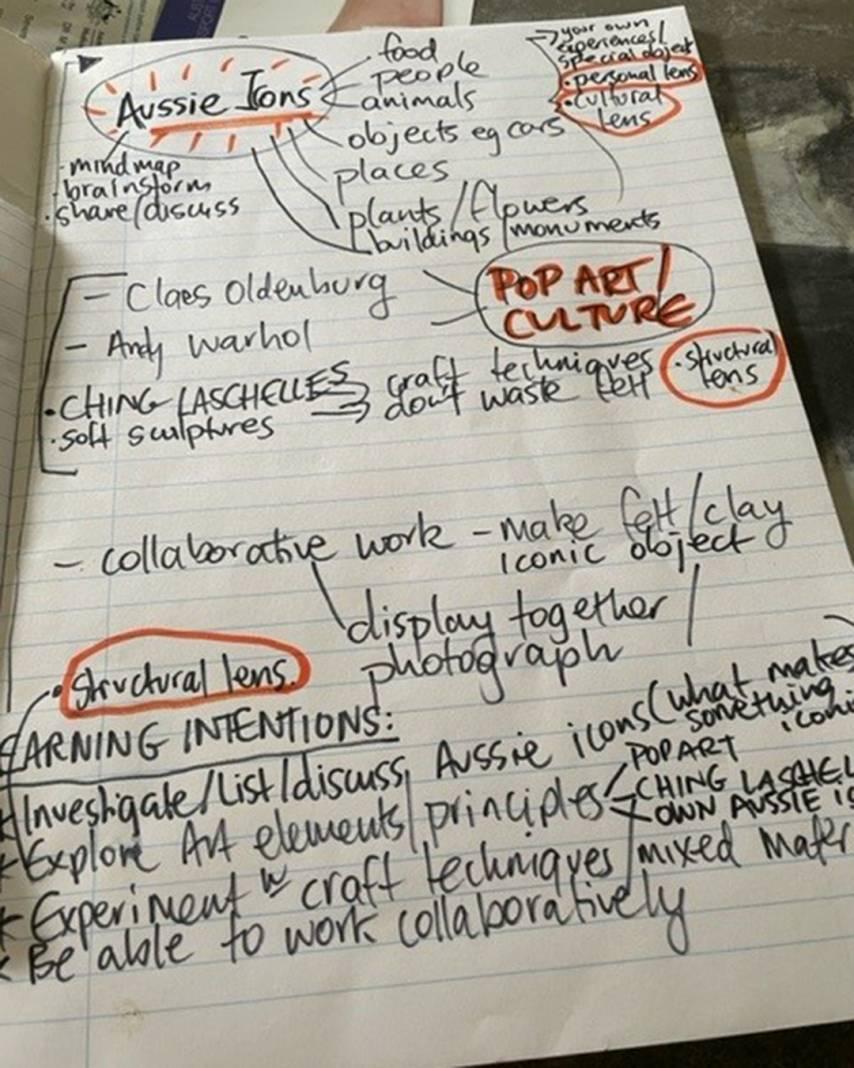 Aussie Icons
food
people
animals
objects eg cars
places
plants/flowers
buildings/monuments
your own
experiences/
special object
• personal lens
• cultural
lens
- mind map
- brainstorm
• share/discuss
POP ART/
CULTURE
- Claes Oldenburg
- Andy Warhol
• CHING LASCHELLES
• soft sculptures
craft techniques
don't waste felt
• structural
lens
- collaborative work - make felt/clay
iconic object
display together/
photograph
• structural lens.
EARNING INTENTIONS:
* Investigate/List/discuss Aussie icons (what makes
something
iconi
* Explore Art elements/principles
POP ART
CHING LASCHEL
OWN AUSSIE IS
* Experiment w craft techniques/mixed mater
* Be able to work collaboratively